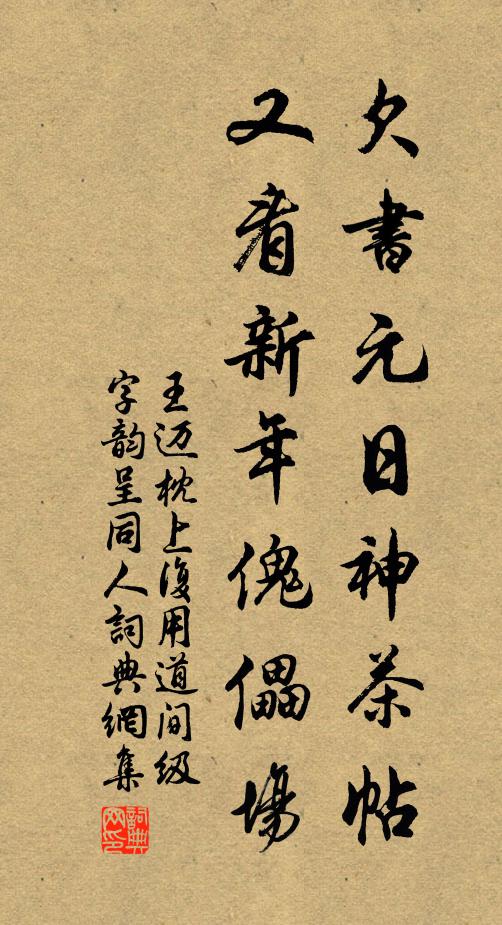 久書元日神荼帖
又看新年傀儡場
王迈枕上復用道间级
字韵呈同人詞典網集
詞典网印